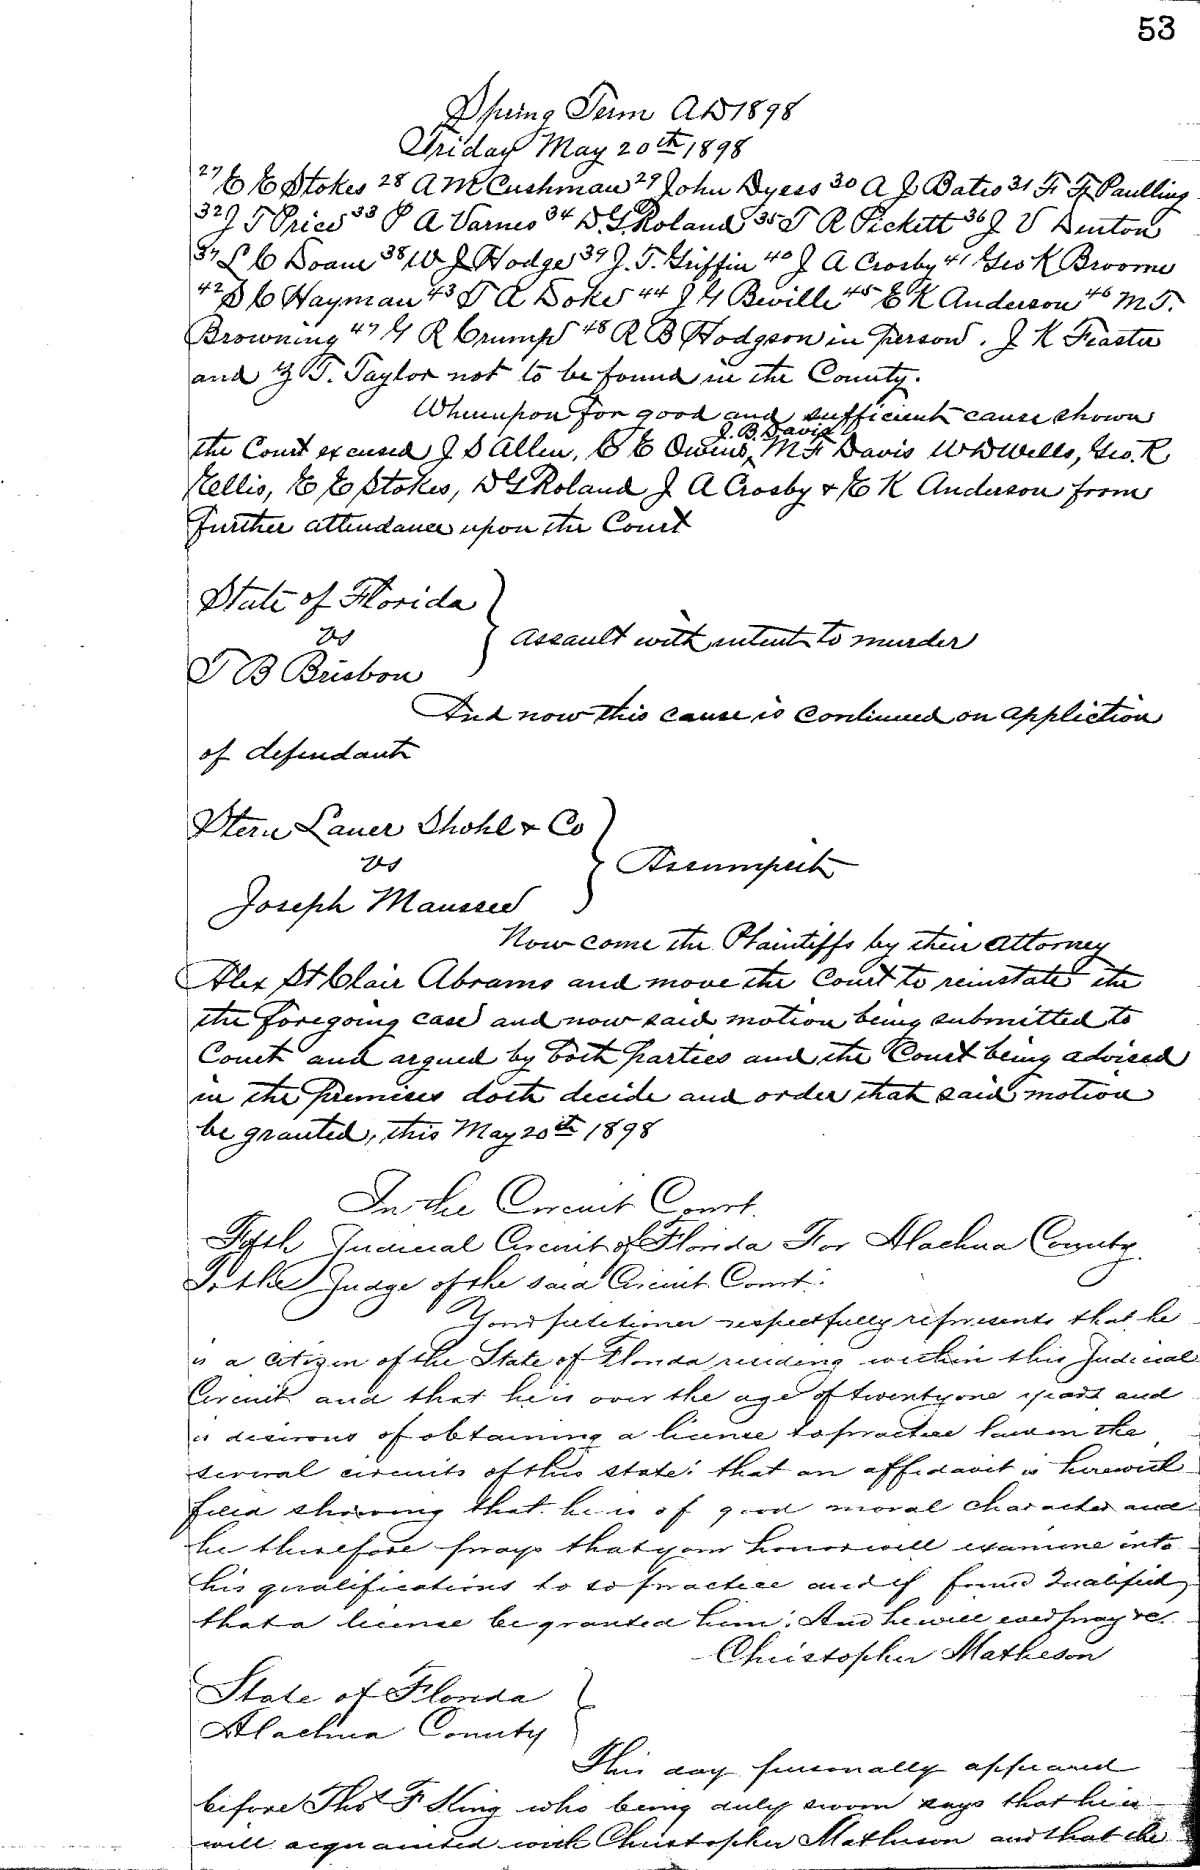 53
Spring Term AD 1898
Friday May 20th 1898
27 E E Stokes 28 A M Cushman 29 John Dyess 30 A J Bates 31 F F Paulling
32 J T Price 33 P A Varnes 34 D. G. Roland 35 T R Pickett 36 J V Denton
37 L C Doane 38 W J Hodge 39 J. T. Griffin 40 J A Crosby 41 Geo K Broome
42 D C Hayman 43 T A Dokes 44 J H Beville 45 E K Anderson 46 M T.
Browning 47 G R Crump 48 R B Hodgson in person. J K Feaster
and T. Taylor not to be found in the County.
Whereupon for good and sufficient cause shown
J. B. Davis
the Court excused J D Allen, C E Owens, M F Davis W D Wells, Geo. R
Ellis, E E Stokes, D G Roland J A Crosby & E K Anderson from
further attendance upon the Court
State of Florida
vs
T B Brisbon
assault with intent to murder
And now this cause is continued on appliction
of defendant
Stern Lauer Shohl & Co
vs
Joseph Maussee
Assumpsit
Now come the Plaintiffs by their attorney
Alex St Clair Abrams and move the Court to reinstate the
the foregoing case and now said motion being submitted to
Court and argued by both parties and the Court being advised
in the premises doth decide and order that said motion
be granted, this May 20th 1898
In the Circuit Court.
Fifth Judicial Circuit of Florida For Alachua County.
To the Judge of the said Circuit Court:
Your petitioner respectfully represents that he
is a citizen of the State of Florida residing within this Judicial
Circuit and that he is over the age of twenty one years and
is desirous of obtaining a license to practice law in the
several circuits of this state: that an affidavit is herewith
filed showing that he is of good moral character and
he therefore prays that your honor will examine into
his qualifications to so practice and if found qualified,
that a license be granted him: And he will ever pray &c.
Christopher Matheson
State of Florida
Alachua County
This day personally appeared
before Thos F King who being duly sworn says that he is
well acquainted with Christopher Matheson and that the